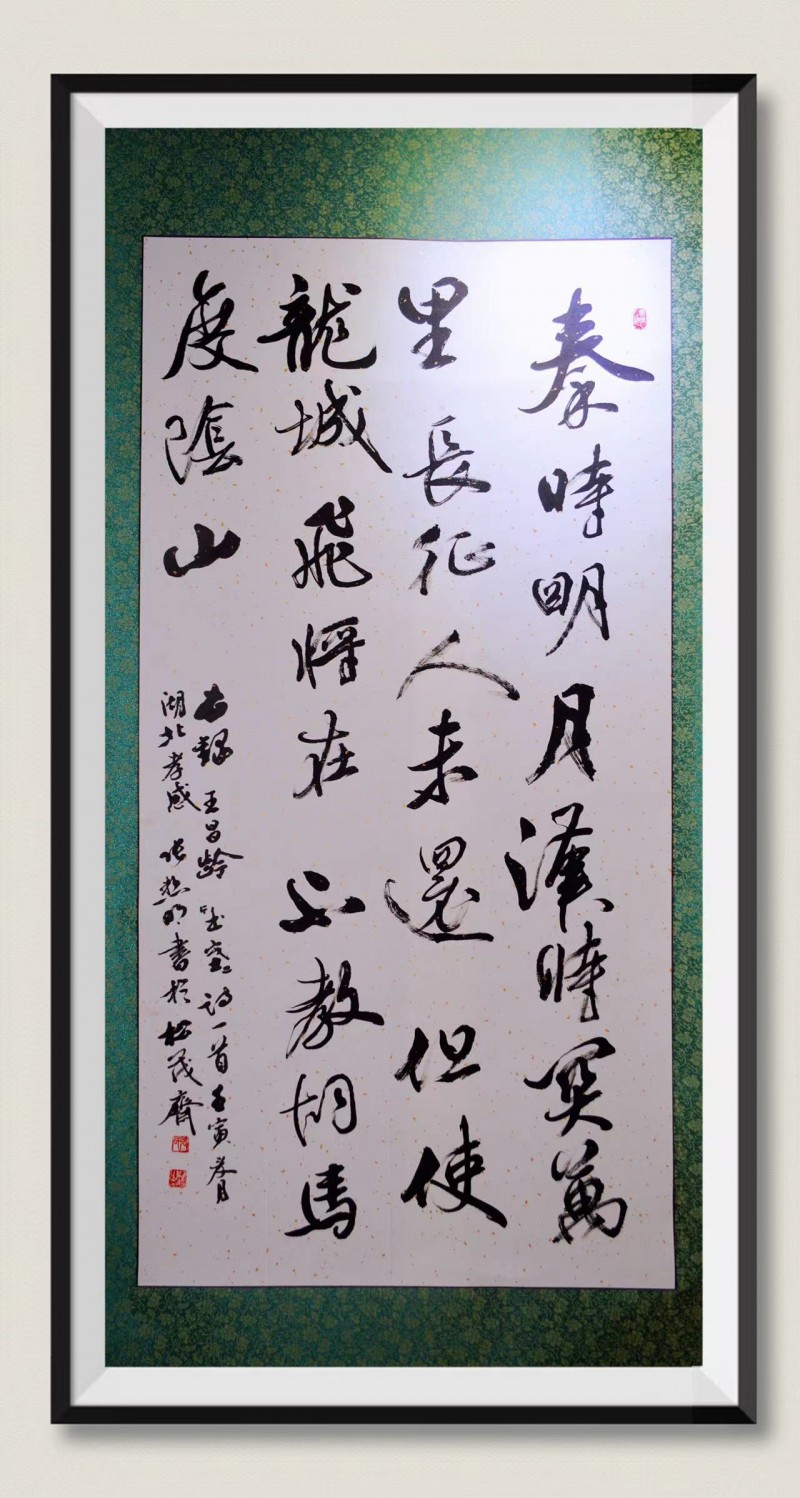 秦時明月漢時関萬
里長征人未還但使
龍城飛將在不教胡馬
度陰山
錄王昌齡出塞詩一首壬寅月
湖北孝感張明書於松茂齋